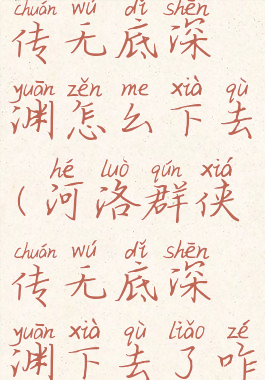 chuán wú dǐ shēn
传无底深
yuān zěn me xià qù
渊怎么下去
hé luò qún xiá
(河洛群侠
chuán wú dǐ shēn
传无底深
yuān xià qù liǎo zé
渊下去了咋